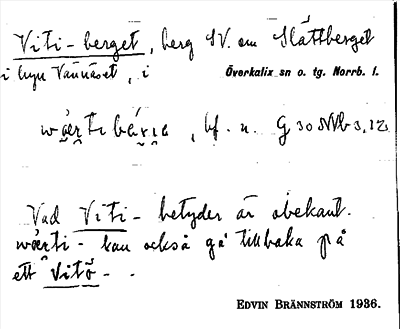 Viti-berget, berg SV. om Slåttberget
i byn Vännäset, i Överkalix sn o. tg. Norrb. l.
bf. n. G 30 NVb 3,12
Vad Viti- betyder är obekant.
- kan också gå tillbaka på
ett Vitö- -
EDVIN BRÄNNSTRÖM 1936.